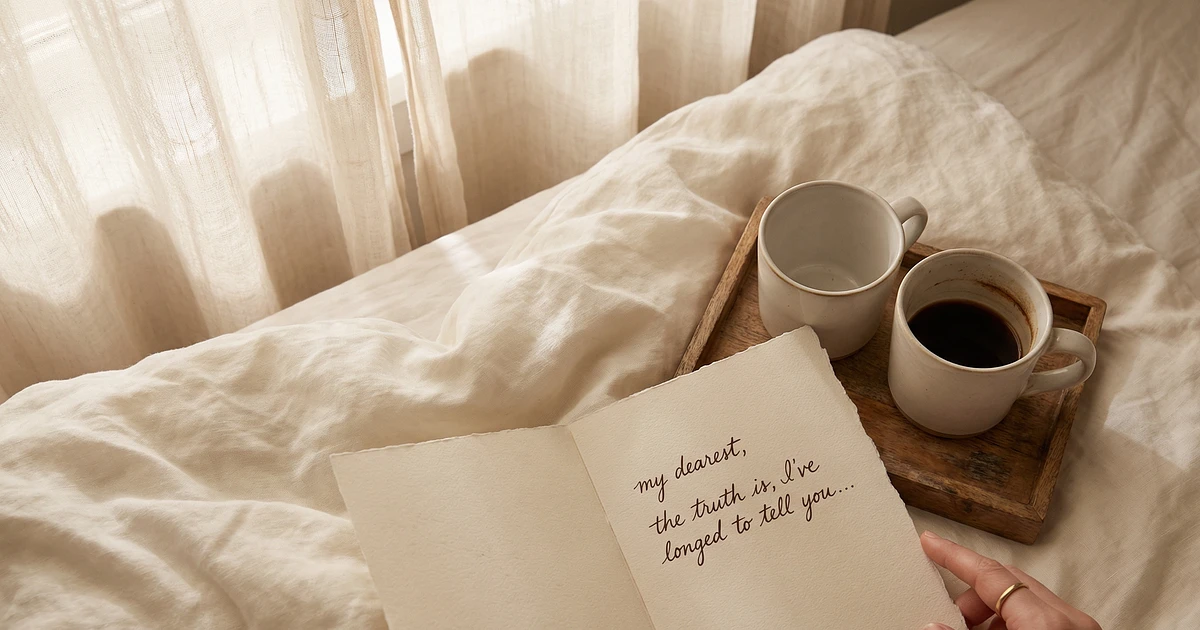 my dearest,
the truth is, I've
longed to tell you...